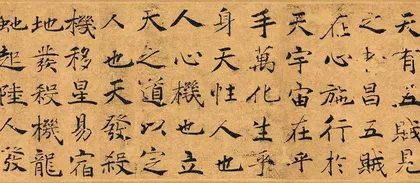 天有五賊見
之者昌五賊
在心施行於
天宇宙在乎
手萬化生乎
身天性人也
人心機也立
天之道以定
人也天發殺
機移星易宿
地發殺機龍
虵起陸人發